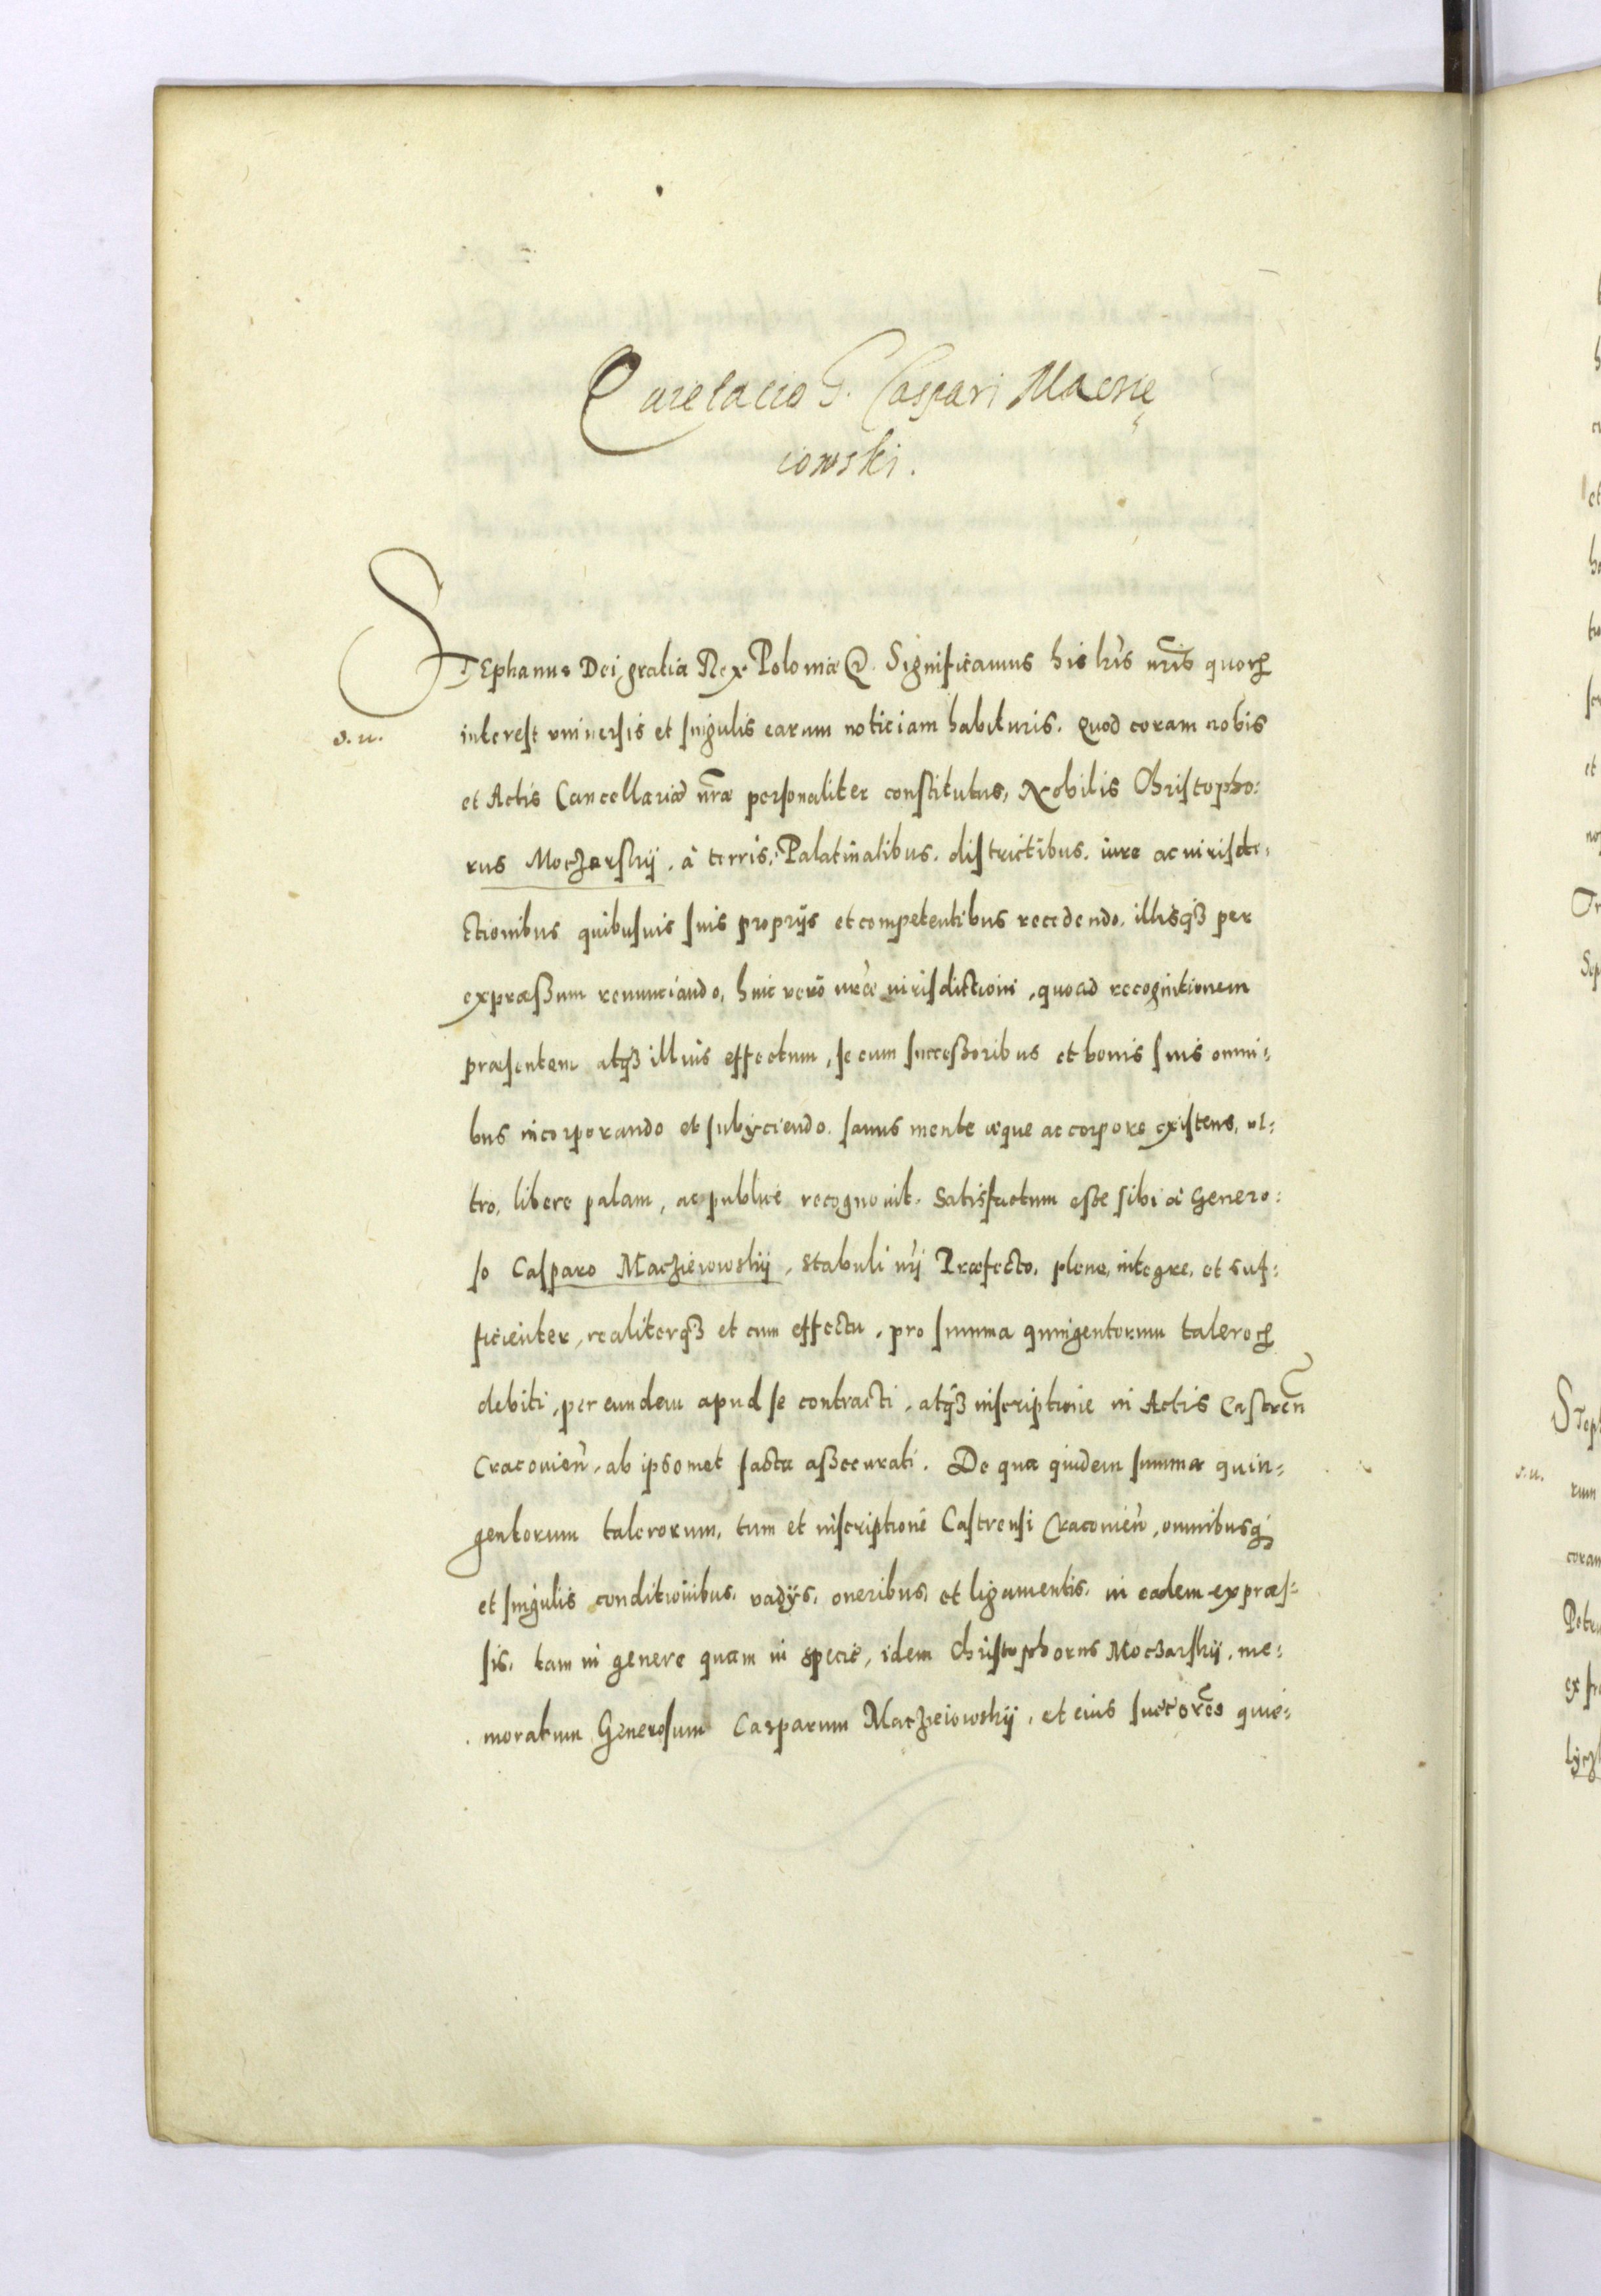 Caselacio G. Caspari Maczie
iowski.
STEphanus Dei gratia Rex Poloniæ &. Significamus his lr̃is nr̃is quorꝫ
s. u.
interest vniuersis et singulis earum noticiam habituris. Quod coram nobis
et Actis Cancellariæ nr̃æ personaliter constitutus, Nobilis Christopho:
rus Moczarskij, à terris, Palatinatibus, districtibus, iure ac iurisdi:
ctionibus quibusuis suis proprijs et competentibus recedendo, illisqꝫ per
expræßum renunciando, huic verò nr̃æ iurisdictioni, quoad recognitionem
præsentem atqꝫ illius effectum, se cum succeßoribus et bonis suis omni:
bus incorporando et subijciendo. sanus mente æque ac corpore existens, vl:
tro, libere palam, ac publicè recognouit. Satisfactum esse sibi à Genero:
so Casparo Maczieiowskij, stabuli nr̃i Præfecto, plene, integre, et suf:
ficienter, realiterqꝫ et cum effectu, pro summa quingentorum talerorꝫ
debiti, per eundem apud se contracti, atqꝫ inscriptione in Actis Castreñ
Cracouieñ, ab ipsomet facta aßecurati. De qua quidem summa quin:
gentorum talerorum, tum et inscriptione Castrensi Cracouieñ, omnibusqꝫ
et singulis conditionibus, vadijs, oneribus, et ligamentis, in eadem expræs:
sis, tam in genere quam in specie, idem Christophorus Moczarskij, me:
moratum Generosum Casparum Maczieiowskij, et eius succ̃ores quie: